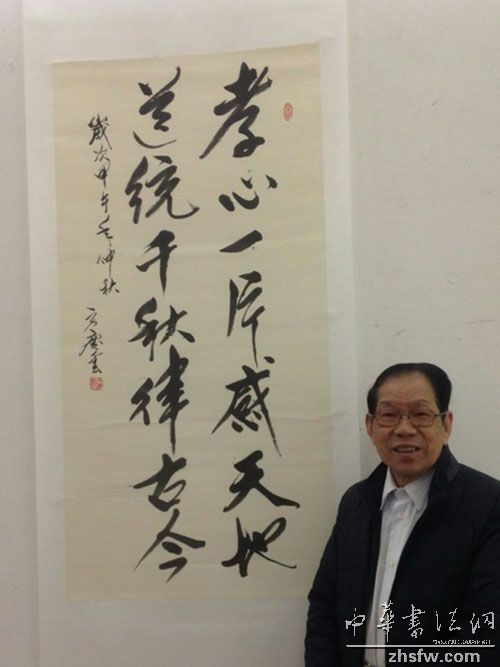 孝心一片感天地
道统千秋律古今
岁次甲午年仲秋
中华书法网
zhsfw.com